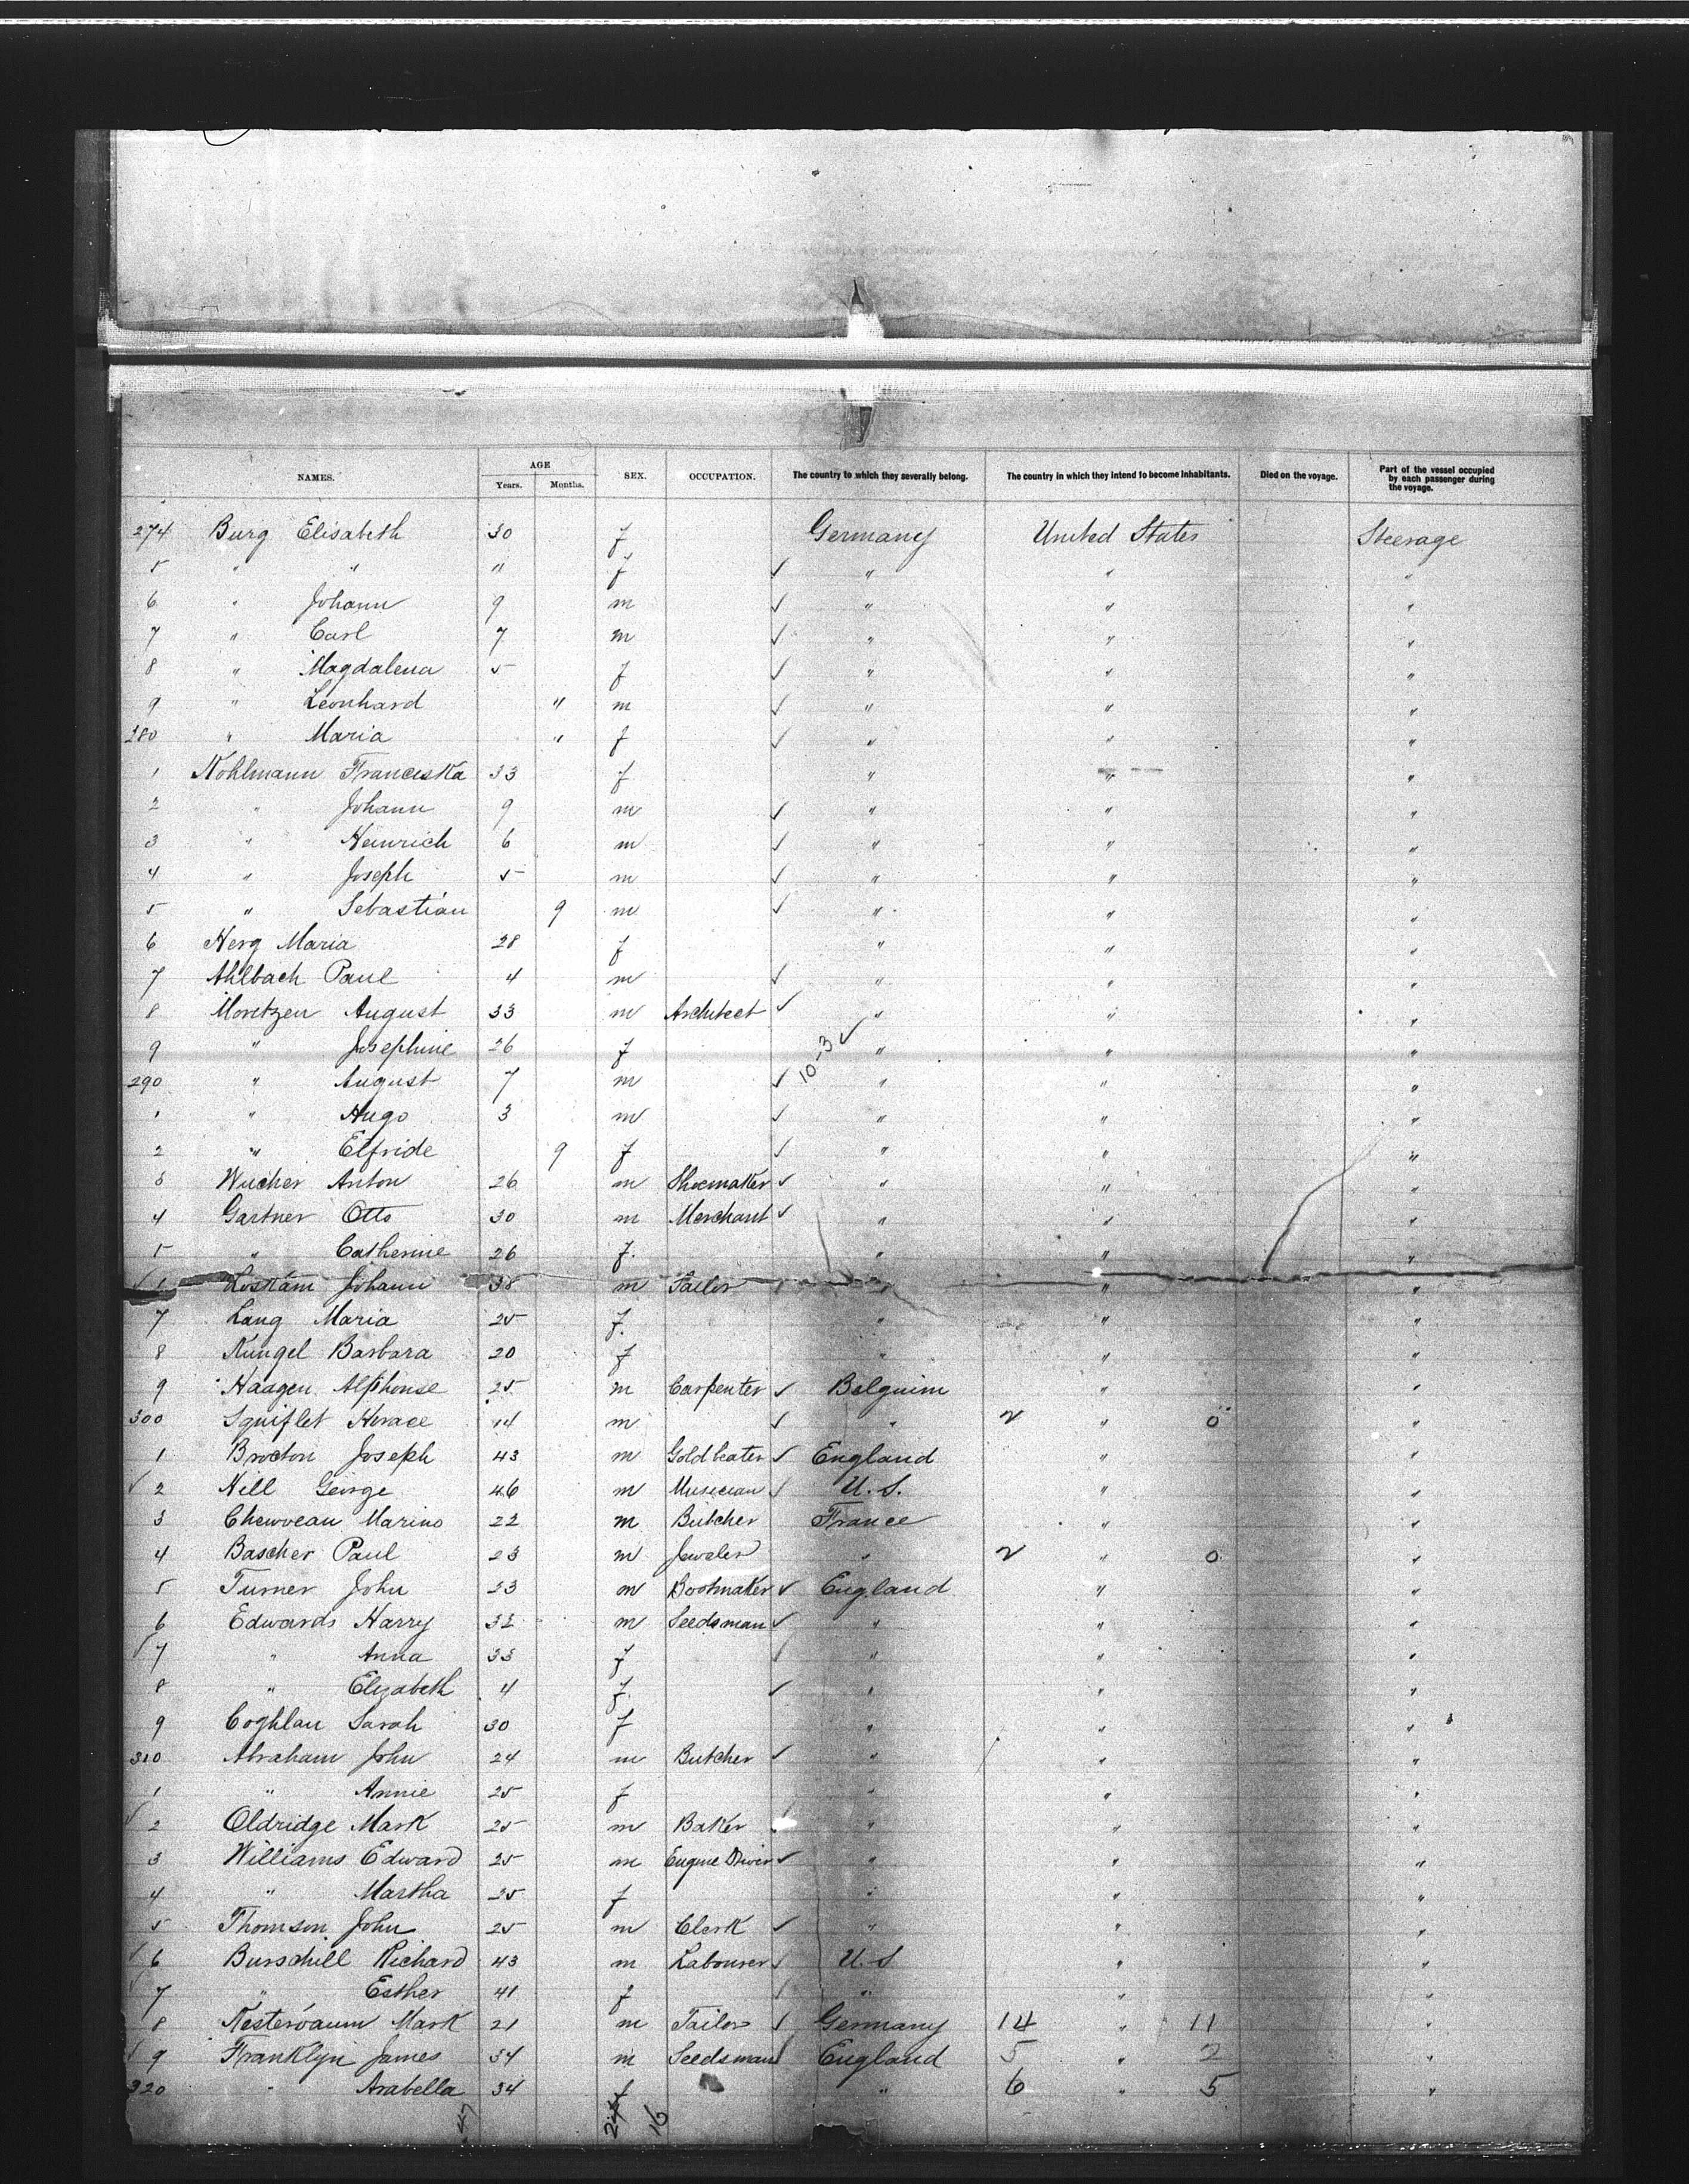 NAMES. AGE Years. Months. SEX. OCCUPATION. The country to which they severally belong. The country in which they intend to become inhabitants. Died on the voyage. Part of the vessel occupied by each passenger during the voyage.
274 Burg Elisabeth 30 f Germany United States Steerage
5 " " " f ✓ " " "
6 " Johann 9 m ✓ " " "
7 " Carl 7 m ✓ " " "
8 " Magdalena 5 f ✓ " " "
9 " Leonhard " m ✓ " " "
280 " Maria " f ✓ " " "
1 Kohlmann Franciska 33 f " " "
2 " Johann 9 m ✓ " " "
3 " Heinrich 6 m ✓ " " "
4 " Joseph 5 m ✓ " " "
5 " Sebastian 9 m ✓ " " "
6 Herg Maria 28 f " " "
7 Ahlbach Paul 4 m ✓ " " "
8 Moritzen August 33 m Architect ✓ " " "
9 " Josephine 26 f 10-3 ✓ " " "
290 " August 7 m ✓ " " "
1 " Hugo 3 m ✓ " " "
2 " Elfride 9 f ✓ " " "
3 Wucher Anton 26 m Shoemaker ✓ " " "
4 Gartner Otto 30 m Merchant ✓ " " "
5 " Catherine 26 f. " " "
Johann 38 m Tailor " " "
7 Lang Maria 25 f. " " "
8 Kungel Barbara 20 f " " "
9 Haagen Alphonse 25 m Carpenter ✓ Belguim " "
300 Squiflet Horace 14 m ✓ " 2 " 0 "
1 Brocton Joseph 43 m Goldbeater ✓ England " "
✓ 2 Hill George 46 m Musician ✓ U.S. " "
3 Chewveau Marino 22 m Butcher France " "
4 Bascher Paul 23 m Jeweler " 2 " 0 "
5 Turner John 23 m Bootmaker ✓ England " "
6 Edwards Harry 32 m Seedsman ✓ " " "
✓ 7 " Anna 33 f ✓ " " "
8 " Elizabeth 4 f. ✓ " " "
9 Coghlan Sarah 30 f " " "
310 Abraham John 24 m Butcher ✓ " " "
1 " Annie 25 f " " "
✓ 2 Oldridge Mark 25 m Baker " " "
3 Williams Edward 25 m Engine Driver ✓ " " "
4 " Martha 25 f " " "
5 Thomson John 25 m Clerk ✓ " " "
✓ 6 Burschill Richard 43 m Labourer ✓ U.S " "
✓ 7 " Esther 41 f ✓ " " "
8 Nesterbaum Mark 21 m Tailor ✓ Germany 14 " 11 "
✓ 9 Franklyn James 34 m Seedsman ✓ England 5 " 2 "
320 " Arabella 34 f " 6 " 5 "
47 16